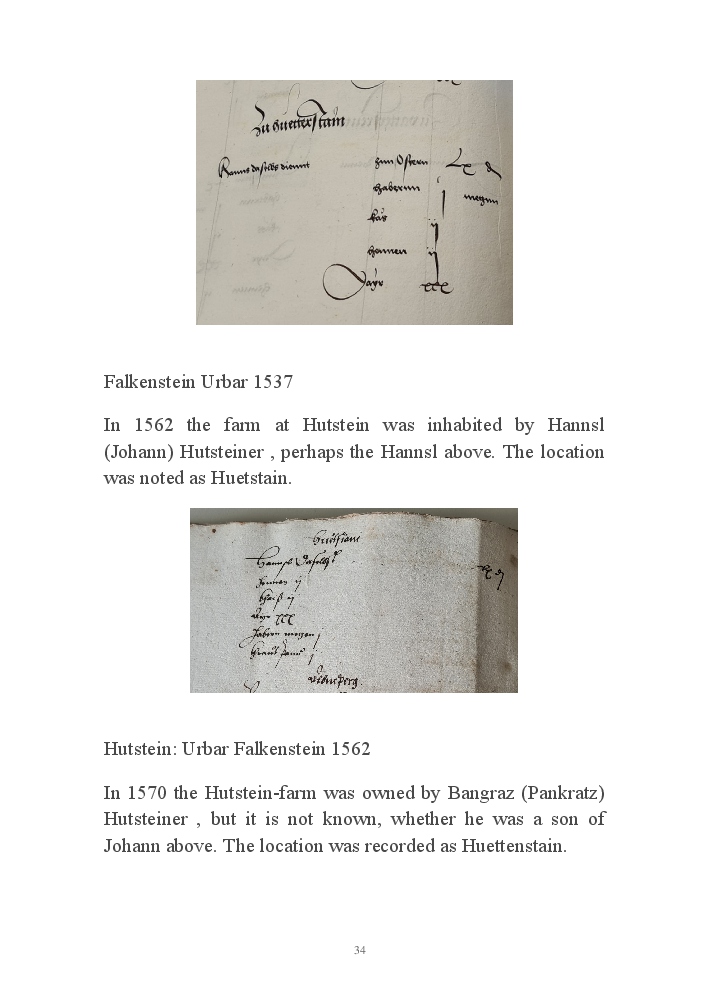 Zu Huetterstain
Hanns daselbs diennt zun Ostern Lx d
habernn j meczn
käs ij
hennen ij
Ayr xxx
Falkenstein Urbar 1537
In 1562 the farm at Hutstein was inhabited by Hannsl
(Johann) Hutsteiner , perhaps the Hannsl above. The location
was noted as Huetstain.
Hannsl Daselbst
hennen ij
Ayr xxx
Habern meczen j
Hutstein: Urbar Falkenstein 1562
In 1570 the Hutstein-farm was owned by Bangraz (Pankratz)
Hutsteiner , but it is not known, whether he was a son of
Johann above. The location was recorded as Huettenstain.
34